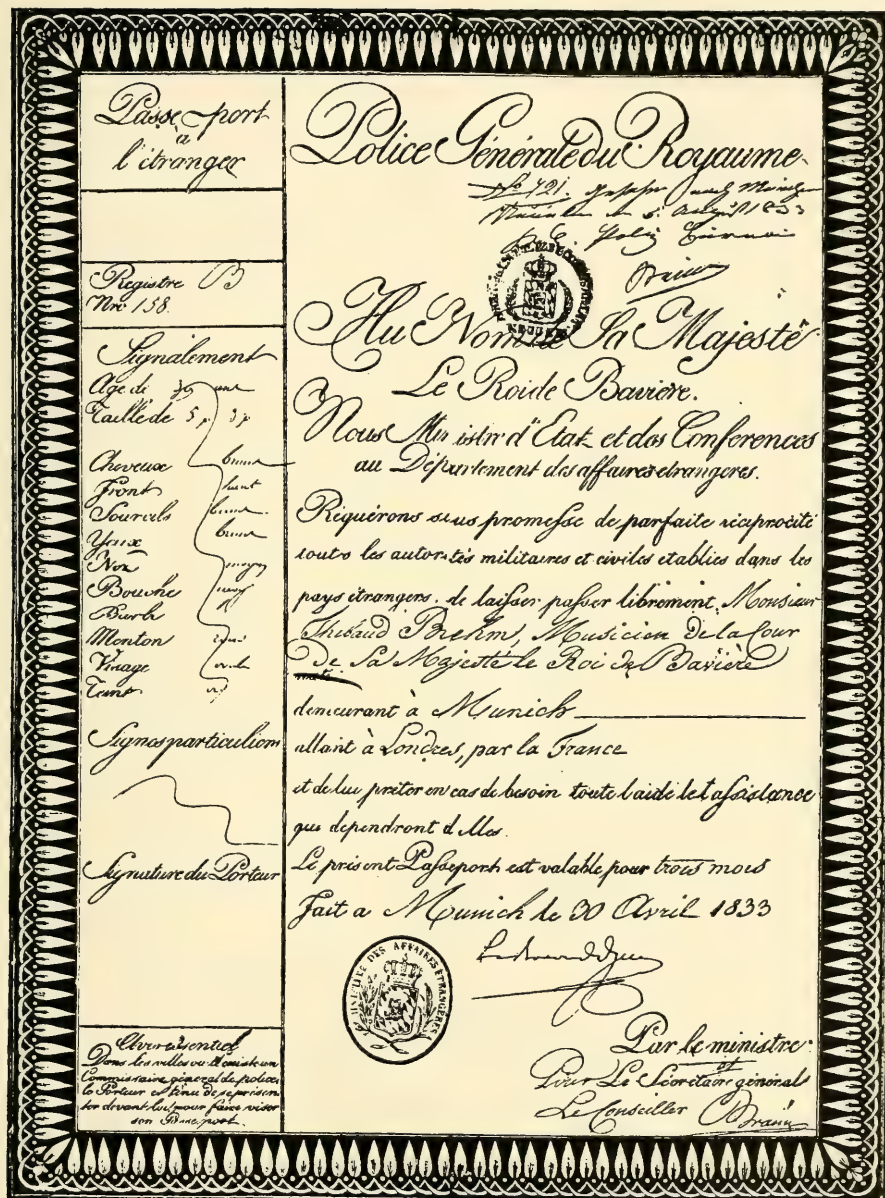 Passe-port
à
l'étranger
Registre B
Nro 158.
Signalement
Age de 39 ans
Taille de 5 p 3 p
Cheveux bruns
Front haut
Sourcils bruns
Yeux bruns
Nez moyen
Bouche moy
Barb
Monton
Visage ovale
Teint
Signes particuliers
Signature du Porteur
Avertissentiel
Dans les villes ou il existe un
Commissaire général de police,
le Porteur est tenu de se présen
ter devant lui pour faire viser
son Passe port.
Police Générale du Royaume.
No 721.
August 1833
Au Nom de Sa Majesté
Le Roi de Bavière.
Nous Ministre d'Etat et des Conferences
au Département des affaires etrangeres.
Réquérons sous promesse de parfaite réciprocité
touts les autorités militaires et civiles etablies dans les
pays étrangers, de laisser passer librement, Monsieur
Thebaud Brehm, Musicien de la Cour
De Sa Majesté le Roi de Bavière
demeurant à Munich
allant à Londres, par la France
et de lui prêter en cas de besoin toute l'aide et assistance
que dependront d'elles.
Le présent Passeport est valable pour trois mois
Fait a Munich le 30 Avril 1833
DES AFFAIRES ÉTRANGÈRES
Par le ministre
et
Pour Le Sécrétaire général
Le Conseiller